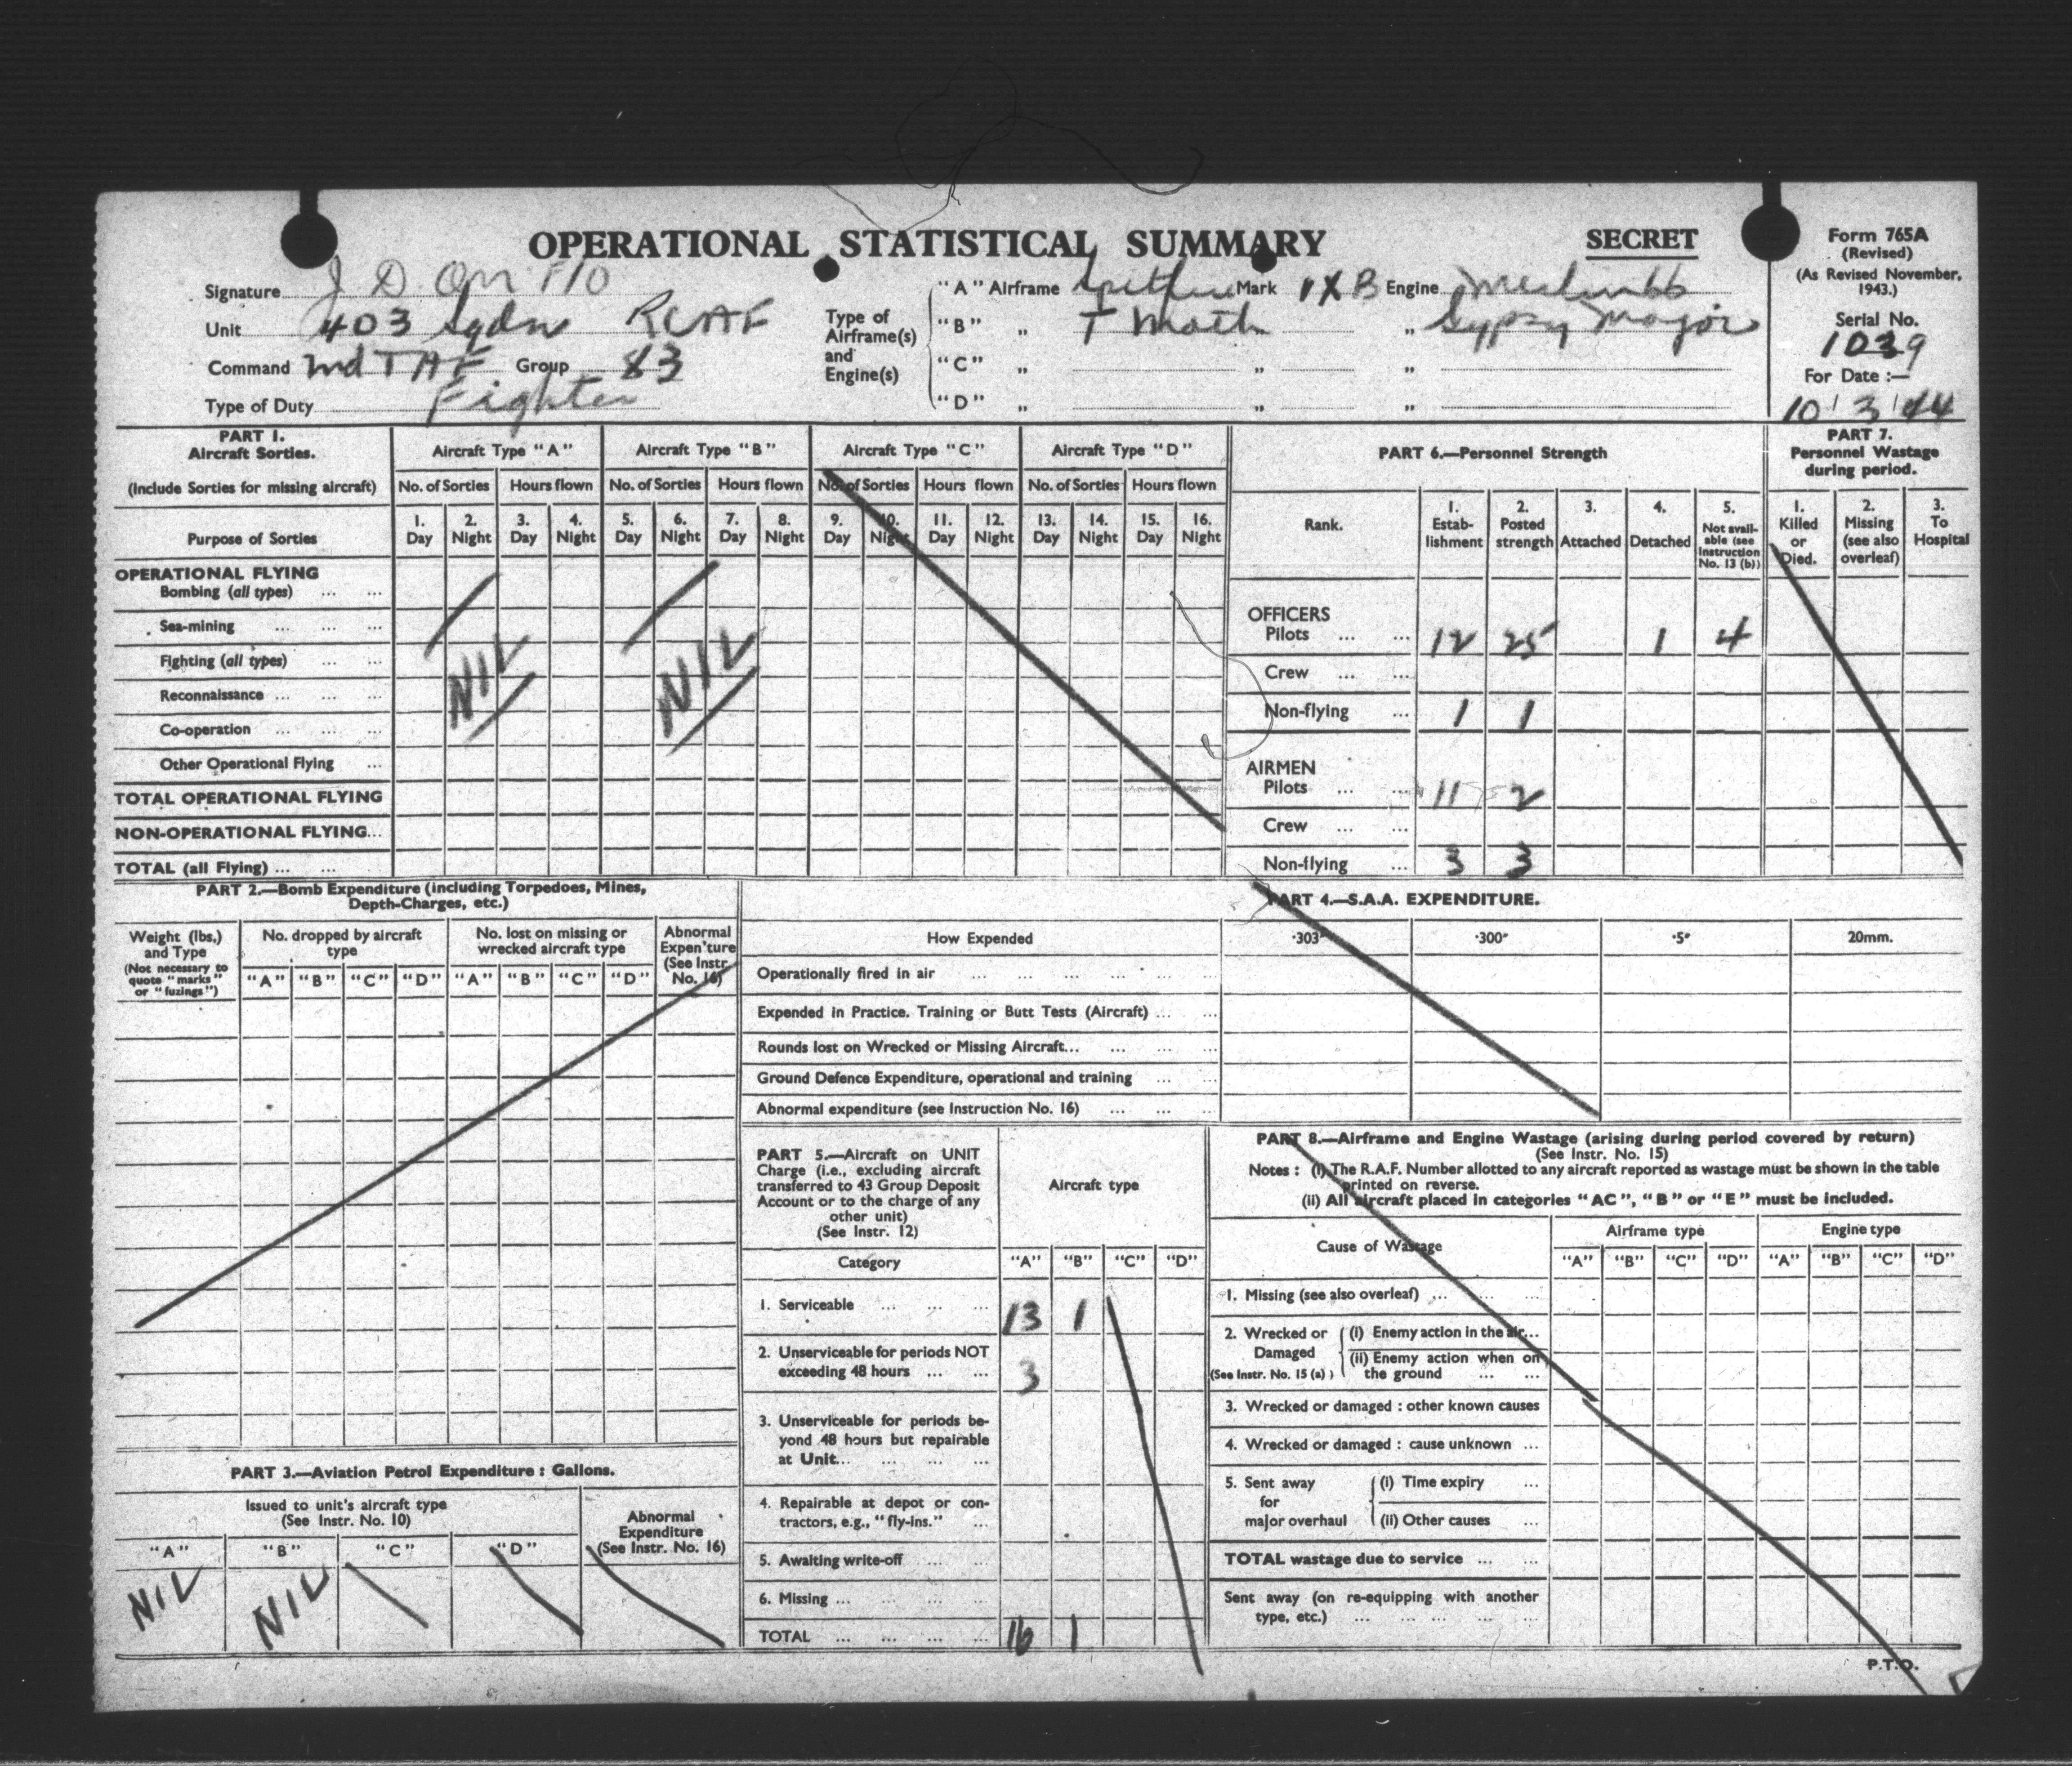 OPERATIONAL STATISTICAL SUMMARY
SECRET
Form 765A
(Revised)
(As Revised November, 1943.)
Serial No.
1039
For Date :—
10 3 44
Signature J D Orr F/O
Unit 403 Sqdn RCAF
Command 2nd TAF Group 83
Type of Duty Fighter
Type of Airframe(s) and Engine(s)
"A" Airframe Spitfire Mark IXB Engine Merlin 66
"B" „ T Moth „ Gypsy Major
"C" „ „ „
"D" „ „ „
PART 1.
Aircraft Sorties.
(Include Sorties for missing aircraft)
Aircraft Type "A" Aircraft Type "B" Aircraft Type "C" Aircraft Type "D"
No. of Sorties Hours flown No. of Sorties Hours flown No. of Sorties Hours flown No. of Sorties Hours flown
Purpose of Sorties
1. Day 2. Night 3. Day 4. Night 5. Day 6. Night 7. Day 8. Night 9. Day 10. Night 11. Day 12. Night 13. Day 14. Night 15. Day 16. Night
OPERATIONAL FLYING
Bombing (all types) ... ...
Sea-mining ... ... ...
Fighting (all types) ... ...
Reconnaissance ... ... ...
Co-operation ... ... ...
Other Operational Flying ...
TOTAL OPERATIONAL FLYING
NON-OPERATIONAL FLYING...
TOTAL (all Flying) ... ...
NIL NIL
PART 6.—Personnel Strength
Rank.
1. Estab-lishment
2. Posted strength
3. Attached
4. Detached
5. Not avail-able (see Instruction No. 13 (b))
OFFICERS
Pilots ... ... 12 25 1 4
Crew ... ...
Non-flying ... 1 1
AIRMEN
Pilots ... ... 11 2
Crew ... ...
Non-flying ... 3 3
PART 7.
Personnel Wastage during period.
1. Killed or Died.
2. Missing (see also overleaf)
3. To Hospital
PART 2.—Bomb Expenditure (including Torpedoes, Mines, Depth-Charges, etc.)
Weight (lbs,) and Type
(Not necessary to quote "marks" or "fuzings")
No. dropped by aircraft type
No. lost on missing or wrecked aircraft type
Abnormal Expen'ture (See Instr. No. 16)
"A" "B" "C" "D" "A" "B" "C" "D"
PART 4.—S.A.A. EXPENDITURE.
How Expended ·303" ·300" ·5" 20mm.
Operationally fired in air ... ... ... ... ... ...
Expended in Practice. Training or Butt Tests (Aircraft) ... ...
Rounds lost on Wrecked or Missing Aircraft... ... ... ...
Ground Defence Expenditure, operational and training ... ...
Abnormal expenditure (see Instruction No. 16) ... ... ...
PART 3.—Aviation Petrol Expenditure : Gallons.
Issued to unit's aircraft type
(See Instr. No. 10)
Abnormal Expenditure
(See Instr. No. 16)
"A" "B" "C" "D"
NIL NIL
PART 5.—Aircraft on UNIT
Charge (i.e., excluding aircraft
transferred to 43 Group Deposit
Account or to the charge of any
other unit)
(See Instr. 12)
Aircraft type
Category "A" "B" "C" "D"
1. Serviceable ... ... ... 13 1
2. Unserviceable for periods NOT
exceeding 48 hours ... ... 3
3. Unserviceable for periods be-
yond 48 hours but repairable
at Unit... ... ... ...
4. Repairable at depot or con-
tractors, e.g., "fly-ins." ...
5. Awaiting write-off ... ...
6. Missing ... ... ... ...
TOTAL ... ... ... ... 16 1
PART 8.—Airframe and Engine Wastage (arising during period covered by return)
(See Instr. No. 15)
Notes : (i) The R.A.F. Number allotted to any aircraft reported as wastage must be shown in the table
printed on reverse.
(ii) All aircraft placed in categories "AC", "B" or "E" must be included.
Cause of Wastage
Airframe type Engine type
"A" "B" "C" "D" "A" "B" "C" "D"
1. Missing (see also overleaf) ... ... ...
2. Wrecked or Damaged
(See Instr. No. 15 (a) )
(i) Enemy action in the air...
(ii) Enemy action when on
the ground ... ...
3. Wrecked or damaged : other known causes
4. Wrecked or damaged : cause unknown ...
5. Sent away for major overhaul
(i) Time expiry ...
(ii) Other causes ...
TOTAL wastage due to service ... ...
Sent away (on re-equipping with another
type, etc.) ... ... ... ... ...
P.T.O.